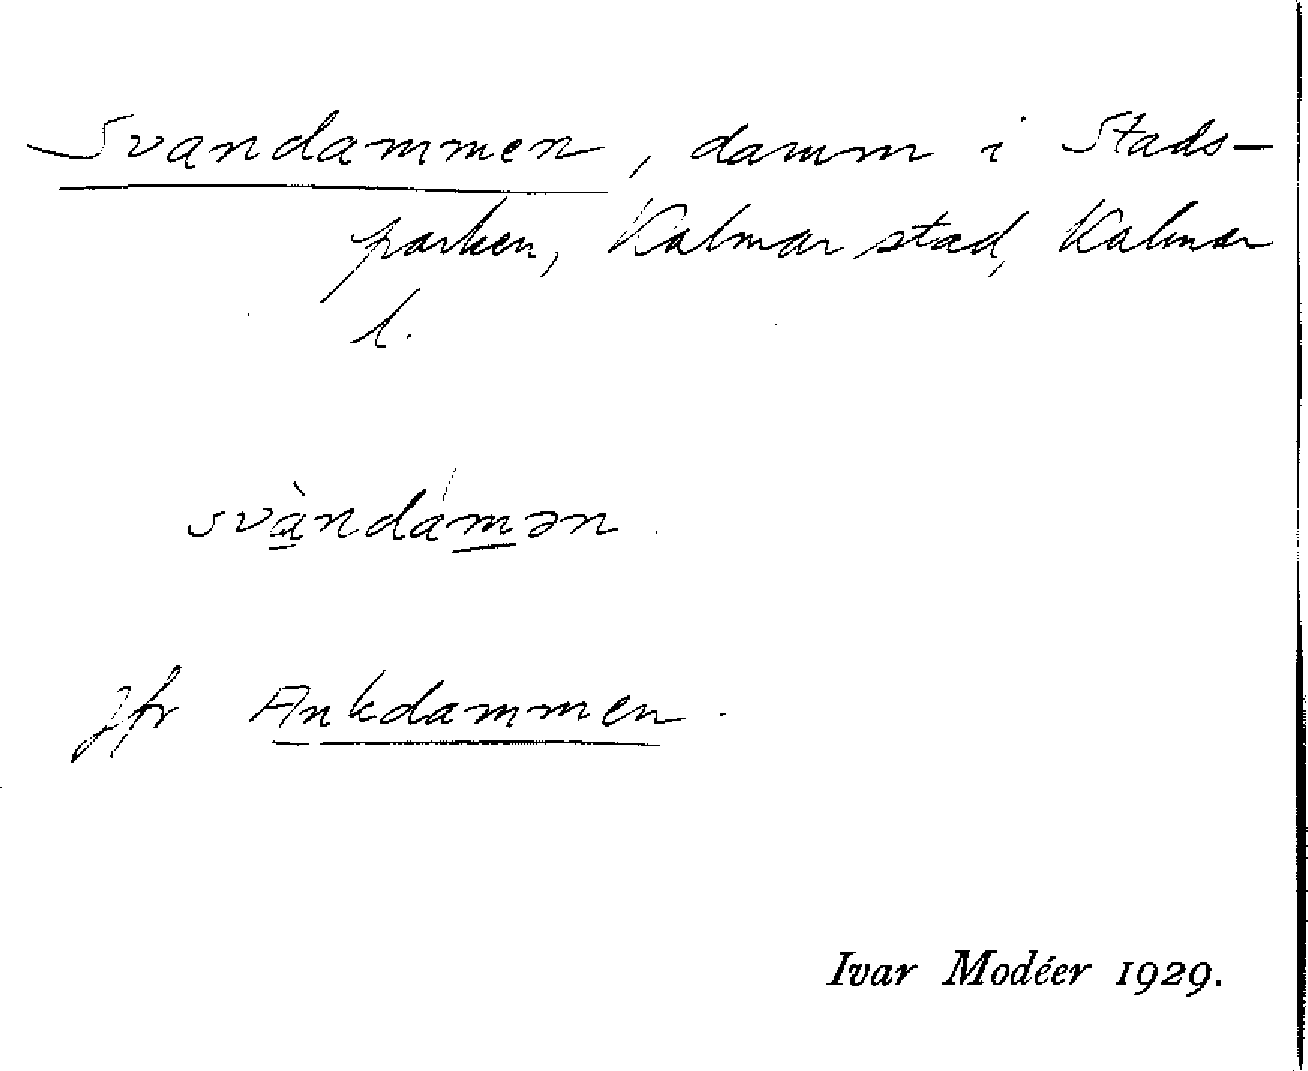 Svandammen, damm i Stads-
parken, Kalmar stad, Kalmar
l.
svàndámən.
Jfr Ankdammen.
Ivar Modéer 1929.